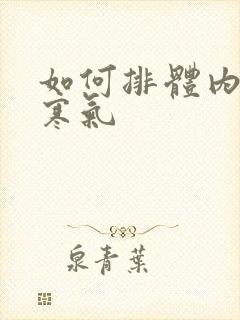 如何排體內
寒氣
泉青葉